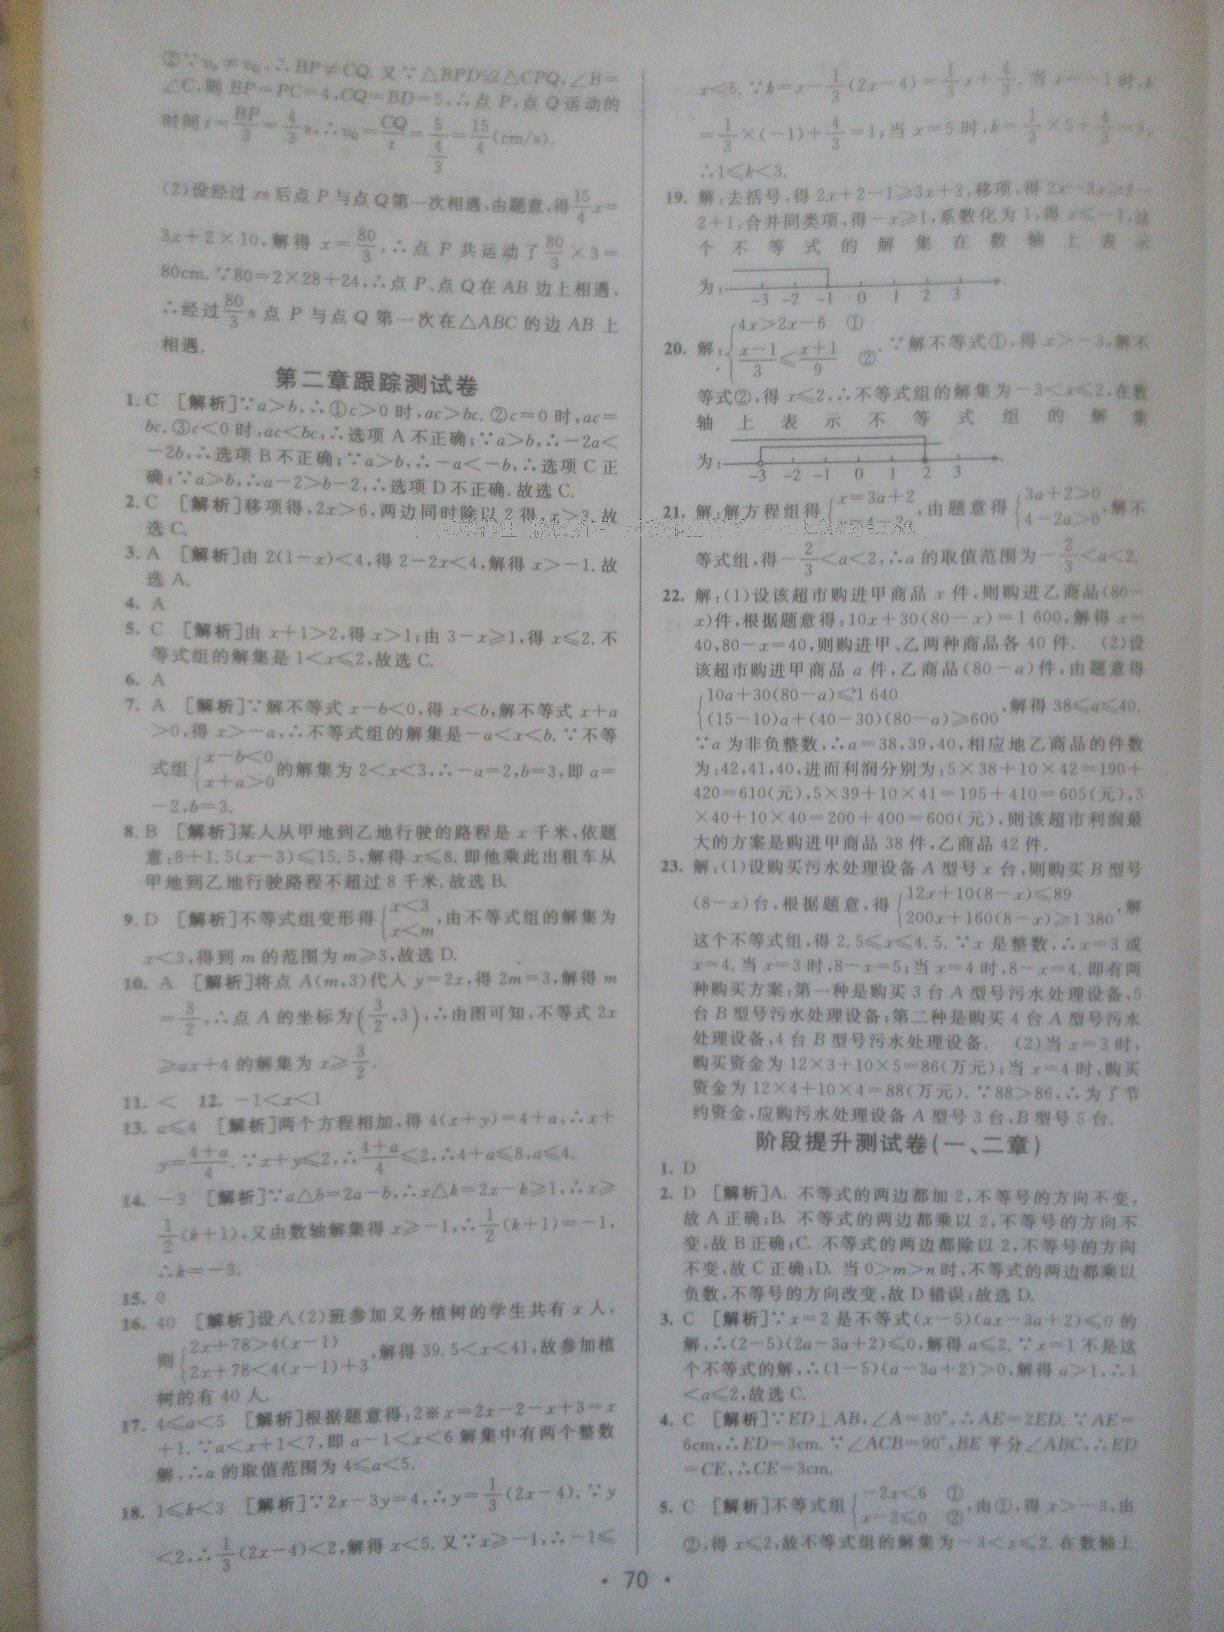 ②∵vP≠vQ,∴BP≠CQ.又∵△BPD≌△CPQ,∠B=
∠C,则BP=PC=4,CQ=BD=5,∴点P,点Q运动的
时间t=BP/3=4/3 s,∴vQ=CQ/t=5/(4/3)=15/4(cm/s).
(2)设经过xs后点P与点Q第一次相遇,由题意,得15/4x=
3x+2×10,解得x=80/3,∴点P共运动了80/3×3=
80cm.∵80=2×28+24,∴点P、点Q在AB边上相遇,
∴经过80/3 s点P与点Q第一次在△ABC的边AB上
相遇.
第二章跟踪测试卷
1. C [解析]∵a>b,∴①c>0时,ac>bc.②c=0时,ac=
bc.③c<0时,ac<bc,∴选项A不正确;∵a>b,∴-2a<
-2b,∴选项B不正确;∵a>b,∴-a<-b,∴选项C正
确;∵a>b,∴a-2>b-2,∴选项D不正确.故选C.
2. C [解析]移项得,2x>6,两边同时除以2得,x>3.故
选C.
3. A [解析]由2(1-x)<4,得2-2x<4,解得x>-1.故
选A.
4. A
5. C [解析]由x+1>2,得x>1;由3-x≥1,得x≤2.不
等式组的解集是1<x≤2,故选C.
6. A
7. A [解析]∵解不等式x-b<0,得x<b,解不等式x+a
>0,得x>-a,∴不等式组的解集是-a<x<b.∵不等
式组{x-b<0 x+a>0的解集为2<x<3,∴-a=2,b=3,即a=
-2,b=3.
8. B [解析]某人从甲地到乙地行驶的路程是x千米,依题
意:8+1.5(x-3)≤15.5,解得x≤8.即他乘此出租车从
甲地到乙地行驶路程不超过8千米.故选B.
9. D [解析]不等式组变形得{x<3 x<m,由不等式组的解集为
x<3,得到m的范围为m≥3,故选D.
10. A [解析]将点A(m,3)代入y=2x,得2m=3,解得m
=3/2,∴点A的坐标为(3/2,3),∴由图可知,不等式2x
≥ax+4的解集为x≥3/2.
11. < 12. -1<x<1
13. a≤4 [解析]两个方程相加,得4(x+y)=4+a,∴x+
y=4+a/4.∵x+y≤2,∴4+a/4≤2,∴4+a≤8,a≤4.
14. -3 [解析]∵a△b=2a-b,∴x△k=2x-k≥1,∴x≥
1/2(k+1),又由数轴解集得x≥-1,∴1/2(k+1)=-1,
∴k=-3.
15. 0
16. 40 [解析]设八(2)班参加义务植树的学生共有x人,
则{2x+78>4(x-1) 2x+78<4(x-1)+3,解得39.5<x<41,故参加植
树的有40人.
17. 4≤a<5 [解析]根据题意得:2※x=2x-2-x+3=x
+1.∵a<x+1<7,即a-1<x<6解集中有两个整数
解,∴a的取值范围为4≤a<5.
18. 1≤k<3 [解析]∵2x-3y=4,∴y=1/3(2x-4).∵y
<2,∴1/3(2x-4)<2,解得x<5.又∵x≥-1,∴-1≤
x<5.∵k=x-1/3(2x-4)=1/3x+4/3.当x=-1时,k
=1/3×(-1)+4/3=1;当x=5时,k=1/3×5+4/3=3,
∴1≤k<3.
19. 解:去括号,得2x+2-1≥3x+2,移项,得2x-3x≥2-
2+1,合并同类项,得-x≥1,系数化为1,得x≤-1,这
个不等式的解集在数轴上表示
为: -3 -2 -1 0 1 2 3 .
20. 解:{4x>2x-6 ① x-1/3≤x+1/9 ②.∵解不等式①,得x>-3,解不
等式②,得x≤2,∴不等式组的解集为-3<x≤2,在数
轴上表示不等式组的解集
为: -3 -2 -1 0 1 2 3 .
21. 解:解方程组得{x=3a+2,由题意得{3a+2>0 4-2a>0,解不
等式组,得-2/3<a<2,∴a的取值范围为-2/3<a<2.
22. 解:(1)设该超市购进甲商品x件,则购进乙商品(80-
x)件,根据题意得:10x+30(80-x)=1 600,解得x=
40,80-x=40,则购进甲、乙两种商品各40件. (2)设
该超市购进甲商品a件,乙商品(80-a)件,由题意得
{10a+30(80-a)≤1 640 (15-10)a+(40-30)(80-a)≥600,解得38≤a≤40.
∵a为非负整数,∴a=38,39,40,相应地乙商品的件数
为:42,41,40,进而利润分别为:5×38+10×42=190+
420=610(元),5×39+10×41=195+410=605(元),5
×40+10×40=200+400=600(元),则该超市利润最
大的方案是购进甲商品38件,乙商品42件.
23. 解:(1)设购买污水处理设备A型号x台,则购买B型号
(8-x)台,根据题意,得{12x+10(8-x)≤89 200x+160(8-x)≥1 380,解
这个不等式组,得2.5≤x≤4.5.∵x是整数,∴x=3或
x=4.当x=3时,8-x=5;当x=4时,8-x=4.即有两
种购买方案:第一种是购买3台A型号污水处理设备,5
台B型号污水处理设备;第二种是购买4台A型号污水
处理设备,4台B型号污水处理设备. (2)当x=3时,
购买资金为12×3+10×5=86(万元);当x=4时,购买
资金为12×4+10×4=88(万元).∵88>86,∴为了节
约资金,应购污水处理设备A型号3台,B型号5台.
阶段提升测试卷(一、二章)
1. D
2. D [解析]A.不等式的两边都加2,不等号的方向不变,
故A正确;B.不等式的两边都乘以2,不等号的方向不
变,故B正确;C.不等式的两边都除以2,不等号的方向
不变,故C正确;D.当0>m>n时,不等式的两边都乘以
负数,不等号的方向改变,故D错误;故选D.
3. C [解析]∵x=2是不等式(x-5)(ax-3a+2)≤0的
解,∴(2-5)(2a-3a+2)≤0,解得a≤2.∵x=1不是这
个不等式的解,∴(1-5)(a-3a+2)>0,解得a>1,∴1
<a≤2,故选C.
4. C [解析]∵ED⊥AB,∠A=30°,∴AE=2ED.∵AE=
6cm,∴ED=3cm.∵∠ACB=90°,BE平分∠ABC,∴ED
=CE,∴CE=3cm.
5. C [解析]不等式组{-2x<6 ① x-2≤0 ②,由①,得x>-3,由
②,得x≤2,故不等式组的解集为-3<x≤2.在数轴上
· 70 ·